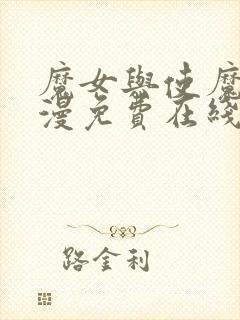 魔女與使魔
漫免費在綫
路金利